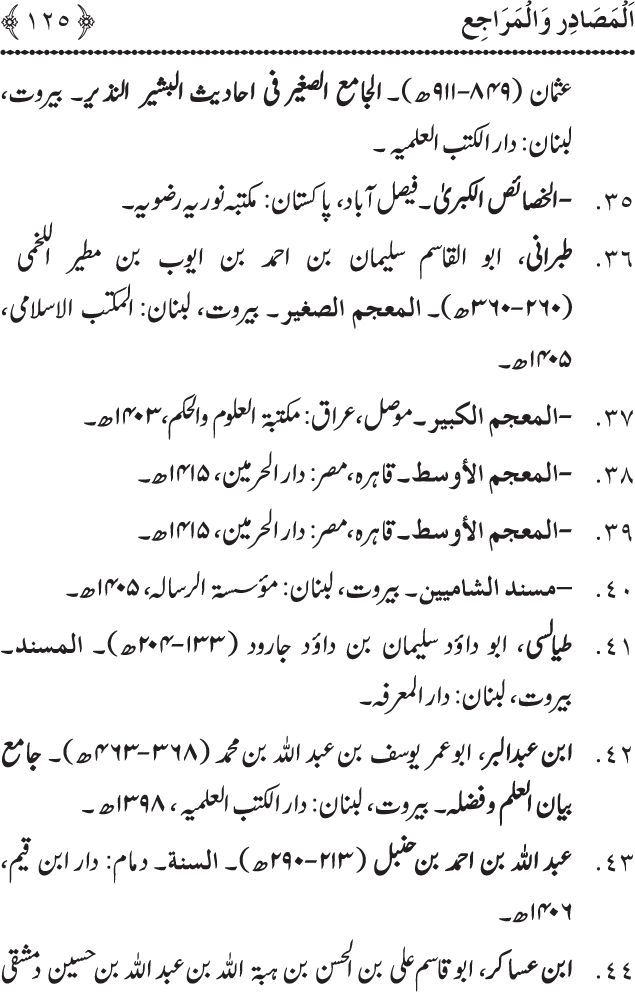 اَلْمَصَادِر وَالْمَرَاجِع ﴿١٢٥﴾
عثمان (۸۴۹-۹۱۱ھ)۔ الجامع الصغیر فی احادیث البشیر النذیر۔ بیروت،
لبنان: دار الکتب العلمیہ ۔
٣٥. -الخصائص الکبریٰ۔ فیصل آباد، پاکستان: مکتبہ نوریہ رضویہ۔
٣٦. طبرانی، ابو القاسم سلیمان بن احمد بن ایوب بن مطیر اللخمی
(۲۶۰-۳۶۰ھ)۔ المعجم الصغیر۔ بیروت، لبنان: المکتب الاسلامی،
۱۴۰۵ھ۔
٣٧. -المعجم الکبیر۔ موصل، عراق: مکتبۃ العلوم والحکم، ۱۴۰۳ھ۔
٣٨. -المعجم الأوسط۔ قاہرہ، مصر: دار الحرمین، ۱۴۱۵ھ۔
٣٩. -المعجم الأوسط۔ قاہرہ، مصر: دار الحرمین، ۱۴۱۵ھ۔
٤٠. -مسند الشامیین۔ بیروت، لبنان: مؤسسۃ الرسالہ، ۱۴۰۵ھ۔
٤١. طیالسی، ابو داؤد سلیمان بن داؤد جارود (۱۳۳-۲۰۴ھ)۔ المسند۔
بیروت، لبنان: دار المعرفہ۔
٤٢. ابن عبدالبر، ابو عمر یوسف بن عبد اللہ بن محمد (۳۶۸-۴۶۳ھ)۔ جامع
بیان العلم و فضلہ۔ بیروت، لبنان: دار الکتب العلمیہ ، ۱۳۹۸ھ ۔
٤٣. عبد اللہ بن احمد بن حنبل (۲۱۳-۲۹۰ھ)۔ السنة۔ دمام: دار ابن قیم،
۱۴۰۶ھ۔
٤٤. ابن عساکر، ابو قاسم علی بن الحسن بن ہبۃ اللہ بن عبد اللہ بن حسین دمشقی